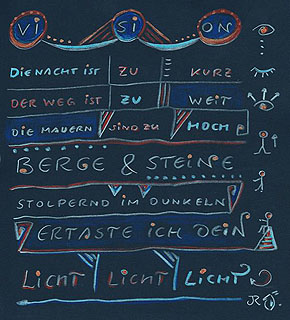 VISION
DIE NACHT IST ZU KURZ
DER WEG IST ZU WEIT
DIE MAUERN SIND ZU HOCH
BERGE & STEINE
STOLPERND IM DUNKELN
ERTASTE ICH DEIN
LICHT LICHT LICHT
JR